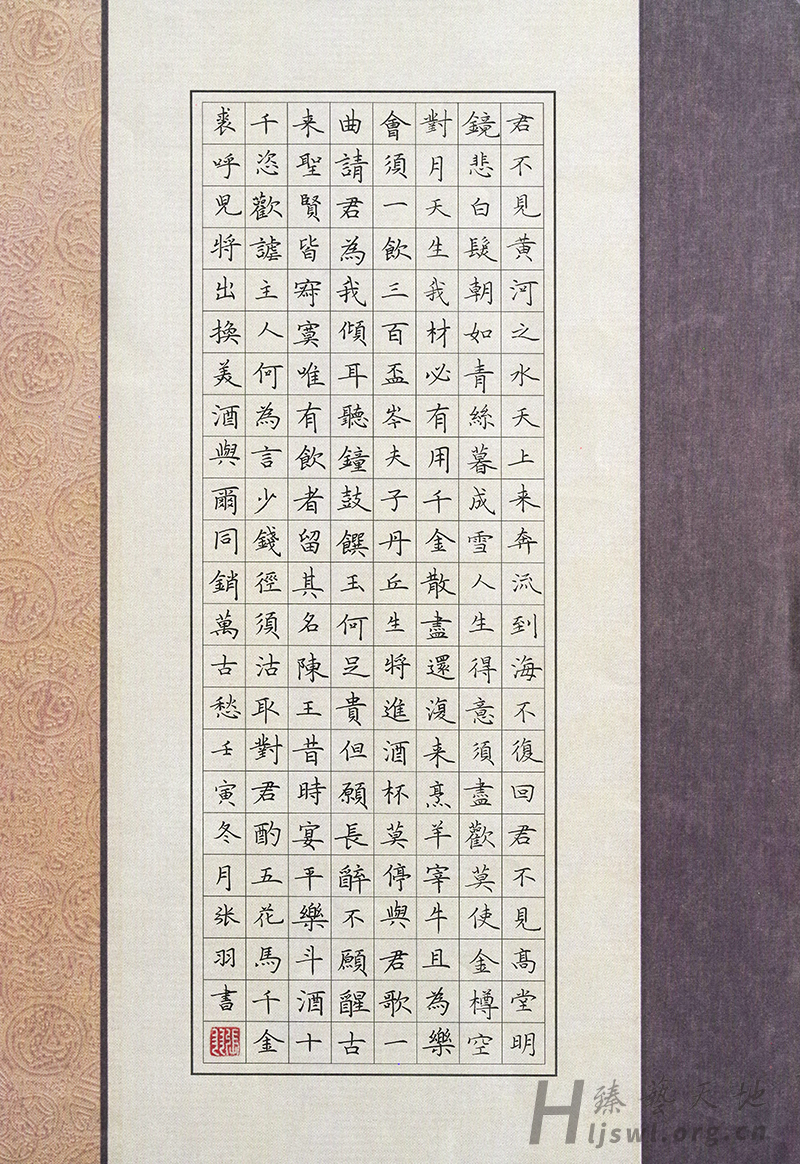 君不見黄河之水天上来奔流到海不復回君不見髙堂明
鏡悲白髮朝如青絲暮成雪人生得意須盡歡莫使金樽空
對月天生我材必有用千金散盡還復来烹羊宰牛且為樂
會須一飲三百盃岑夫子丹丘生將進酒杯莫停與君歌一
曲請君為我傾耳聽鐘鼓饌玉何足貴但願長醉不願醒古
来聖賢皆寂寞唯有飲者留其名陳王昔時宴平樂斗酒十
千恣歡謔主人何為言少錢徑須沽取對君酌五花馬千金
裘呼兒將出換美酒與爾同銷萬古愁壬寅冬月张羽書
張羽
臻藝天地
Hljswl.org.cn